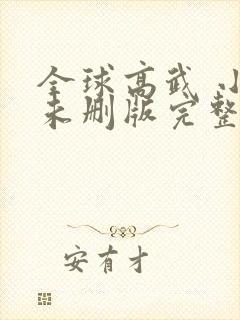 全球高武 小
未删版完整
安有才